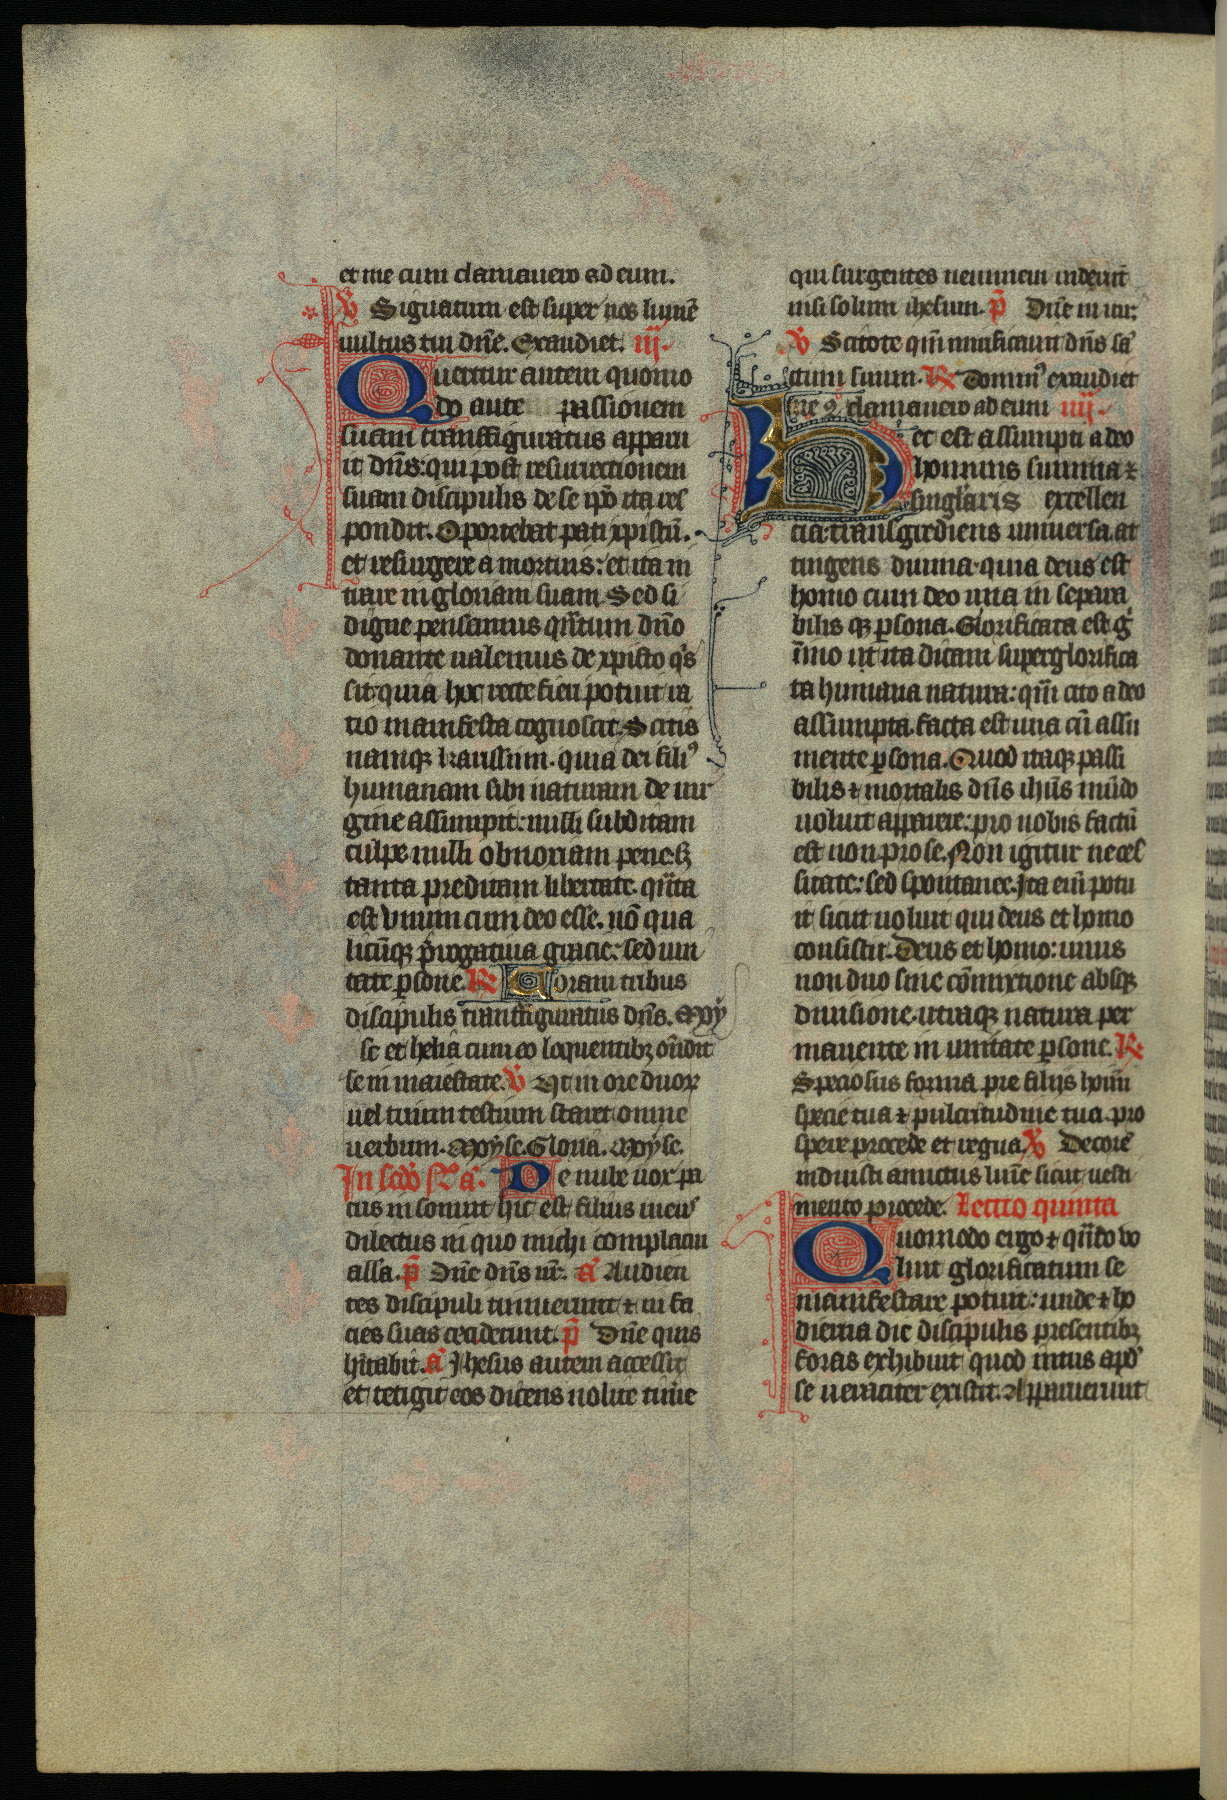 et me cum clamauero ad eum.
V Signatum est super nos lumē
uultus tui dn̄e. Exaudiet. iij.
Queritur autem quomo
do ante passionem
suam transfiguratus apparu
it dn̄s: qui post resurrectionem
suam discipulis de se ip̄o ita res
pondit. Oportebat pati xpistū.
et resurgere a mortuis: et ita in
trare in gloriam suam. Sed si
digne pensamus qn̄tum dn̄o
donante ualemus de xpisto qͥs
sit. quia hoc recte fieri potuit ra
tio manifesta cognoscit. Scitis
namqꝫ karissimi. quia dei filiꝰ
humanam sibi naturam de uir
gine assumpsit: nulli subditam
culpe nulli obnoxiam pene. sꝫ
tanta preditam libertate. qn̄ta
est vnum cum deo esse. nō qua
licūqꝫ p̄rogatiua gracie: sed uni
tate ꝑsone. R Coram tribus
discipulis transfiguratus dn̄s. Moy
se et helia cum eo loquentibꝫ on̄dit
se in maiestate. V Vt in ore duoꝝ
uel trium testium staret omne
uerbum. Moyse. Gloria. Moyse.
In scdō noct̄ a. De nube uox pa
tris insonuit hic est filius meuˢ
dilectus in quo michi complacui
alla. p̄ Dn̄e dn̄s nr̄. a Audien
tes discipuli timuerunt ⁊ in fa
cies suas ceciderunt. p̄ Dn̄e quis
hītabit. a Jhesus autem accessit
et tetigit eos dicens nolite tim̄e
qui surgentes neminem uiderūt
nisi solum ihesum. p̄ Dn̄e in uir.
V Scitote qm̄ mirificauit dn̄s sā
ctum suum. R Dominꝰ exaudiet
me ꝯ clamauero ad eum iiij.
Hec est assumpti a deo
hominis summa ⁊
singlaris excellen
cia: transgrediens uniuersa. at
tingens diuina. quia deus est
homo cum deo una in separa
bilis qꝫ ꝑsona. Glorificata est gͦ
īmo ut ita dicam superglorifica
ta humana natura: qm̄ cito a deo
assumpta. facta est una cū assu
mente ꝑsona. Quod itaqꝫ passi
bilis ⁊ mortalis dn̄s ihūs mūdo
uoluit apparere: pro nobis factū
est non pro se. Non igitur neces
sitate: sed spontanee. Jta em̄ potu
it sicut uoluit qui deus et homo
consistit. Deus et homo: unus
non duo sine cōmixtione absqꝫ
diuisione. utraqꝫ natura per
manente in unitate ꝑsone. R
Speciosus forma pre filijs homī
specie tua ⁊ pulcritudine tua. pro
spere procede et regna. V Decorē
induisti amictus lum̄e sicut uesti
mento procede. Lectio quinta
Quomodo ergo ⁊ qn̄do vo
luit glorificatum se
manifestare potuit: unde ⁊ ho
dierna die discipulis presentibꝫ
foras exhibuit quod intus apđ
se ueraciter existit. Apparuerunt